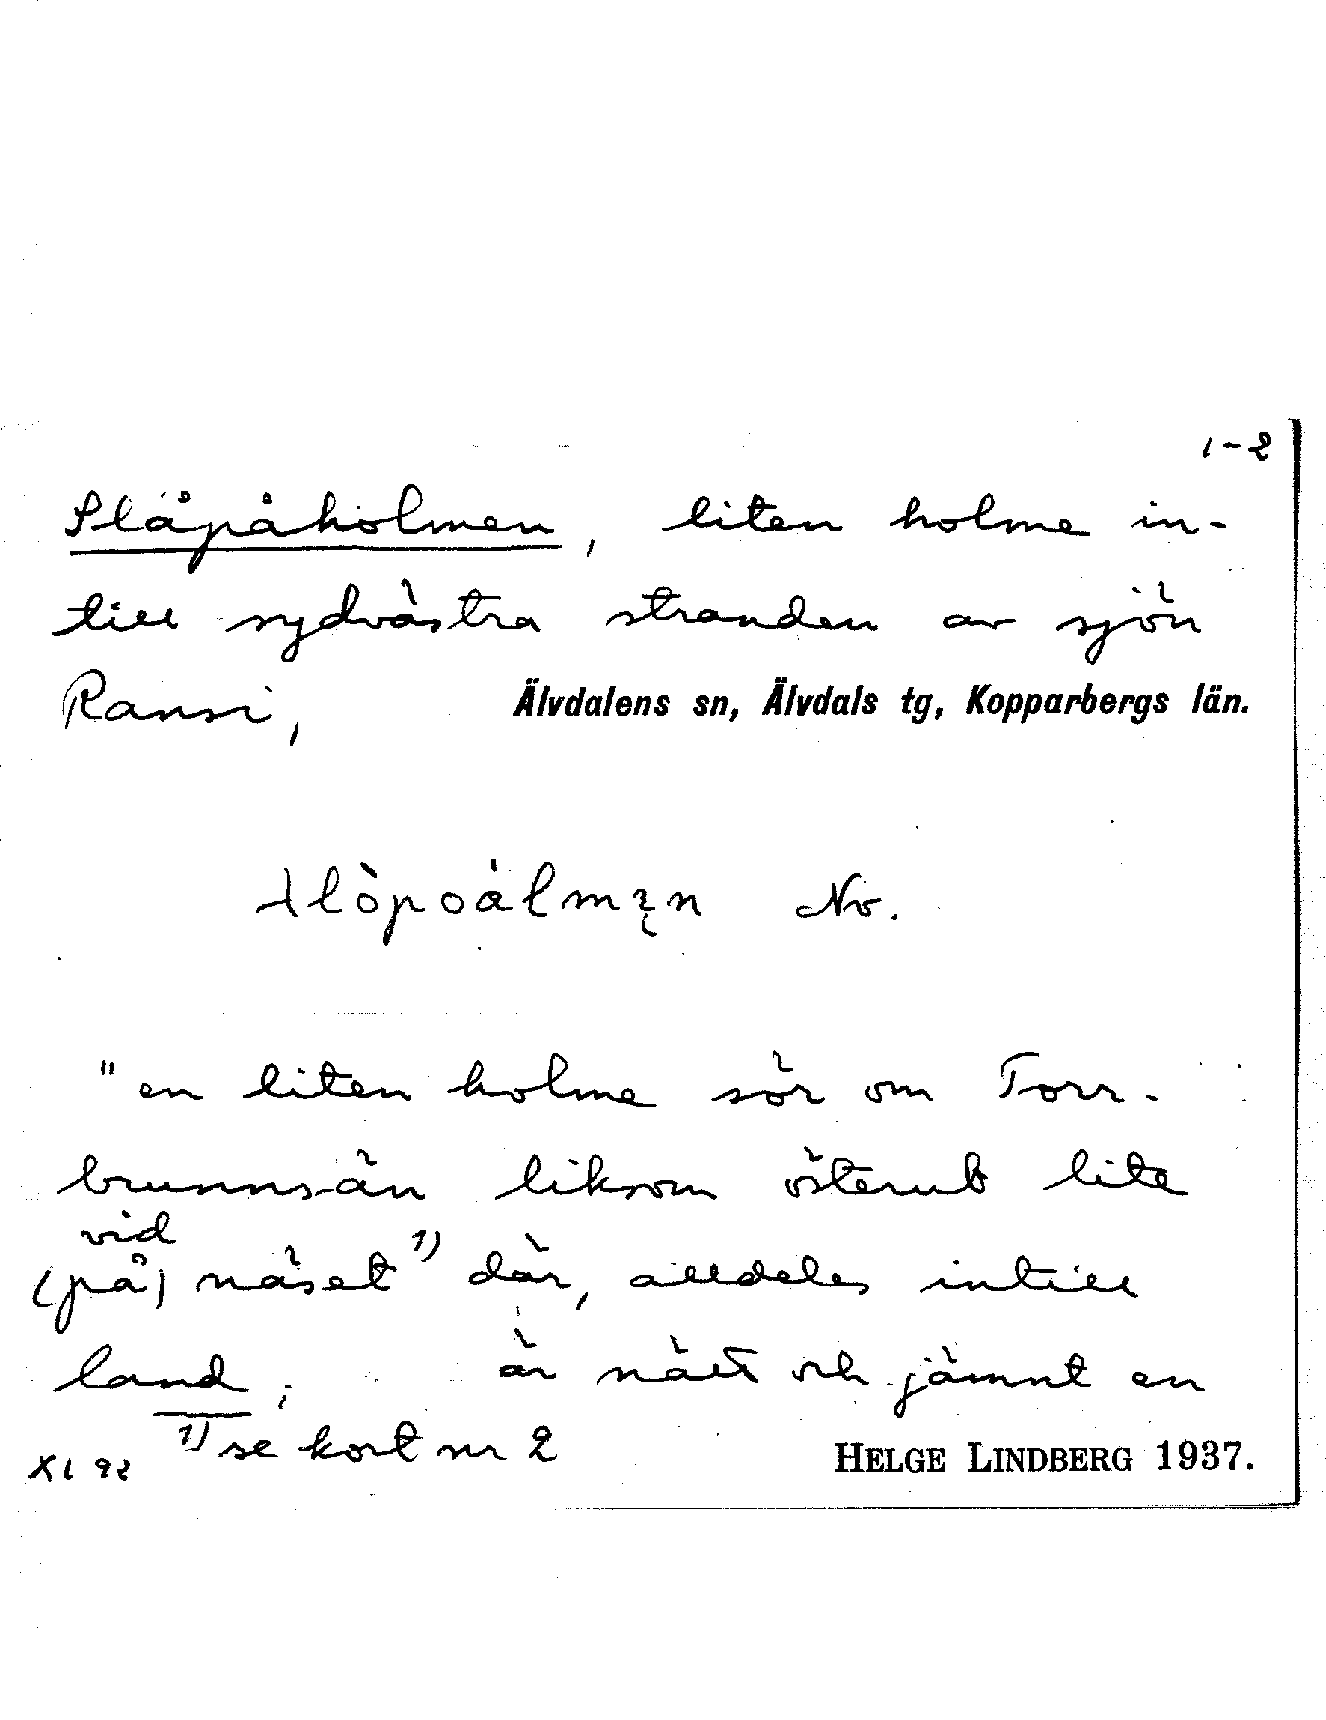 1-2
Slåpåholmen, liten holme in-
till sydvästra stranden av sjön
Ransi, Älvdalens sn, Älvdals tg, Kopparbergs län.
Nv.
"en liten holme sör om Torr-
brunnsån liksom österut lite
vid
(på) näset 1) där, alldeles intill
land; är nätt och jämnt en
1) se kort nr 2
XL 92 HELGE LINDBERG 1937.